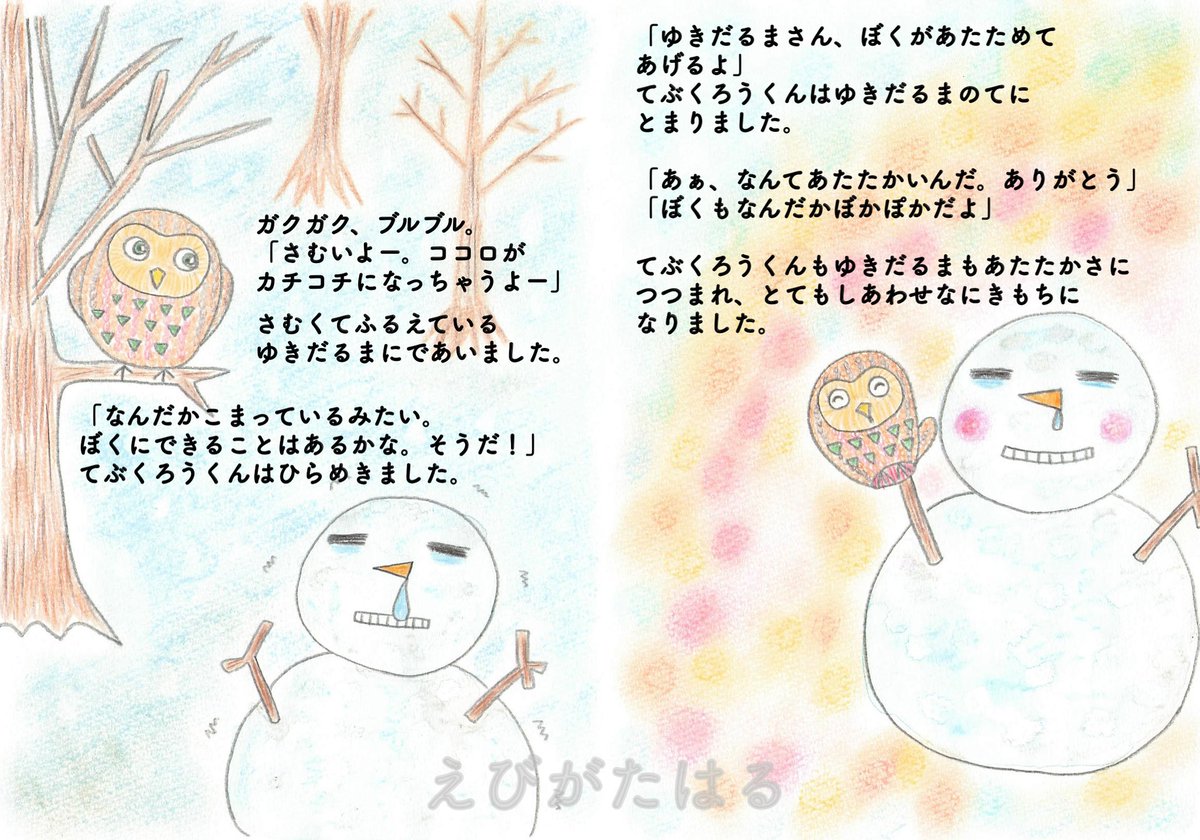 ガクガク、ブルブル。
「さむいよー。ココロが
カチコチになっちゃうよー」
さむくてふるえている
ゆきだるまにであいました。
「なんだかこまっているみたい。
ぼくにできることはあるかな。そうだ！」
てぶくろうくんはひらめきました。
「ゆきだるまさん、ぼくがあたためて
あげるよ」
てぶくろうくんはゆきだるまのてに
とまりました。
「あぁ、なんてあたたかいんだ。ありがとう」
「ぼくもなんだかぽかぽかだよ」
てぶくろうくんもゆきだるまもあたたかさに
つつまれ、とてもしあわせなにきもちに
なりました。
えびがたはる